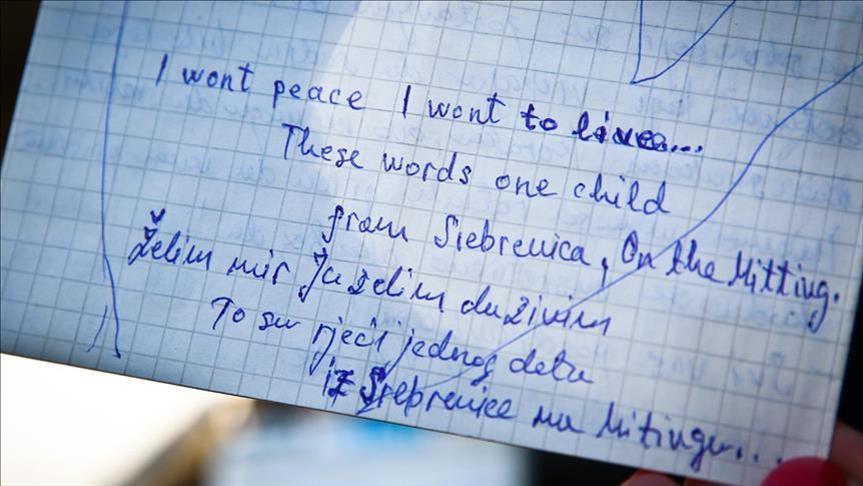 I wont peace I wont to live...
These words one child
from Srebrenica, On the Mitting.
Želim mir Ja želim da živim
To su rječi jednog deta
iz Srebrenice na Mitingu...